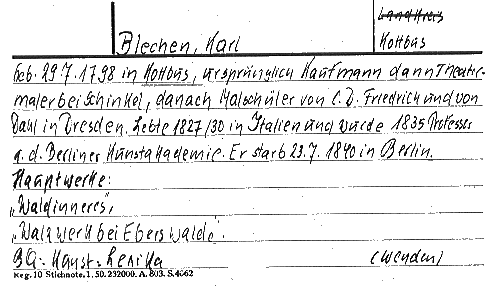 Landkreis
Blechen, Karl
Kottbus
Geb. 29.7.1798 in Kottbus, ursprünglich Kaufmann dann Theater-
maler bei Schinkel, danach Malschüler von C. D. Friedrich und von
Dahl in Dresden. Lebte 1827/30 in Italien und wurde 1835 Professor
a. d. Berliner Kunstakademie. Er starb 23.7.1840 in Berlin.
Hauptwerke:
„Waldinneres",
„Walzwerk bei Eberswalde".
BQ: Kunst-Lexika
(Wenden)
Keg. 10 Stichnote. 1. 50. 232000. A. 803. S. 4062